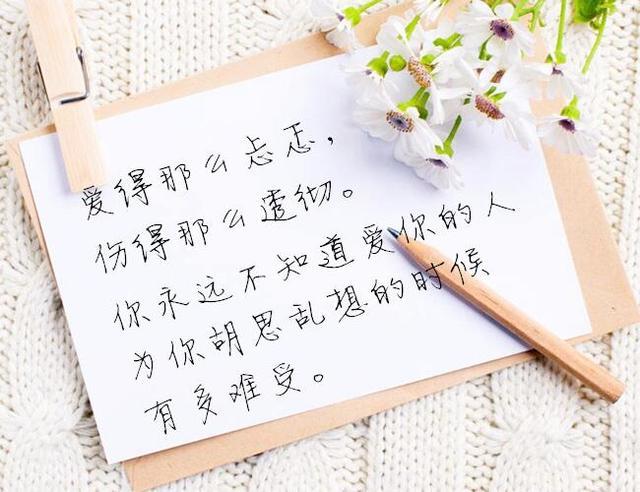 爱得那么忐忑，
伤得那么透彻。
你永远不知道爱你的人
为你胡思乱想的时候
有多难受。